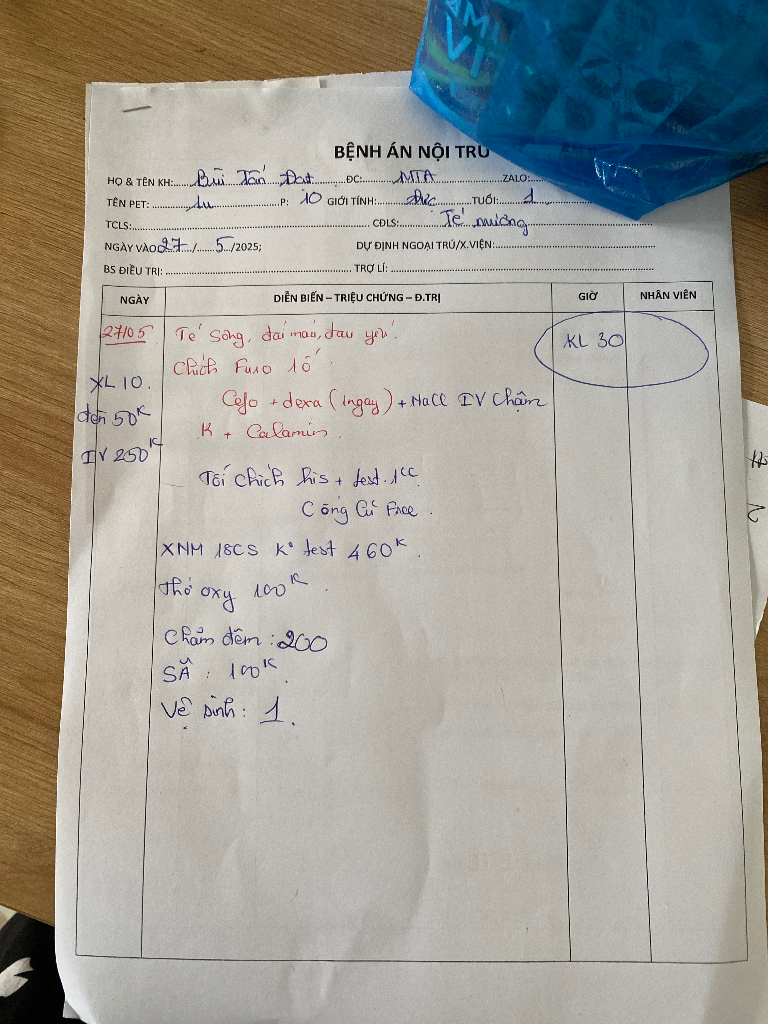 BỆNH ÁN NỘI TRÚ
HỌ & TÊN KH: Bùi Tấn Đạt ĐC: MTA ZALO:
TÊN PET: Lu P: 10 GIỚI TÍNH: Đực TUỔI: 1
TCLS: CĐLS: Té mương
NGÀY VÀO 27 / 5 /2025; DỰ ĐỊNH NGOẠI TRÚ/X.VIỆN:
BS ĐIỀU TRỊ: TRỢ LÍ:
NGÀY DIỄN BIẾN – TRIỆU CHỨNG – Đ.TRỊ GIỜ NHÂN VIÊN
27/05 Té sông, đái máu, đau yếu. KL 30
Chích Furo 1ố
XL 10. Cefo + dexa (1 ngay) + NaCl IV Chậm
đèn 50K K + Calamin.
IV 250K Tối chích his + test 1cc
Cống Cứ Free.
XNM 18CS K° test 460K.
Thở oxy 100K.
Chăm đêm: 200
SÂ : 100K.
Vệ sinh: 1.